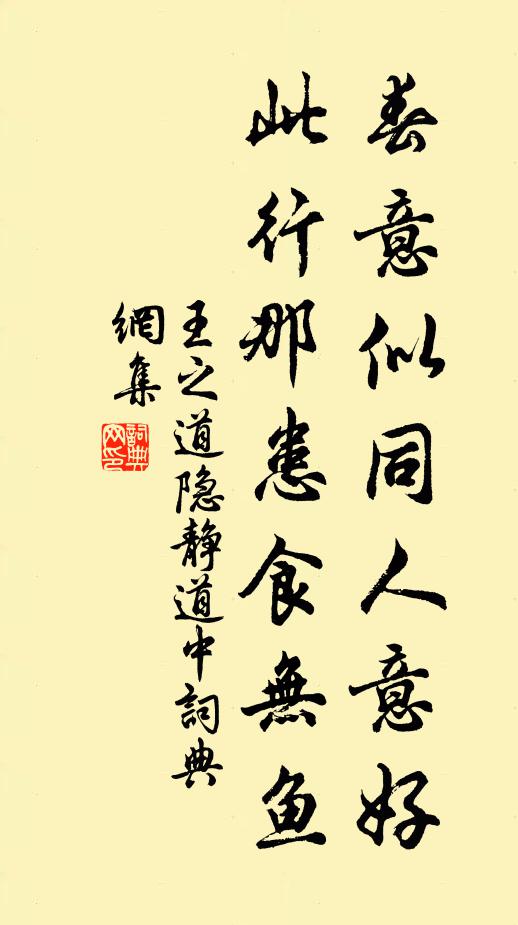 春意似同人意好
此行那患食無鱼
王之道隐静道中詞典
網集
詞典
网印